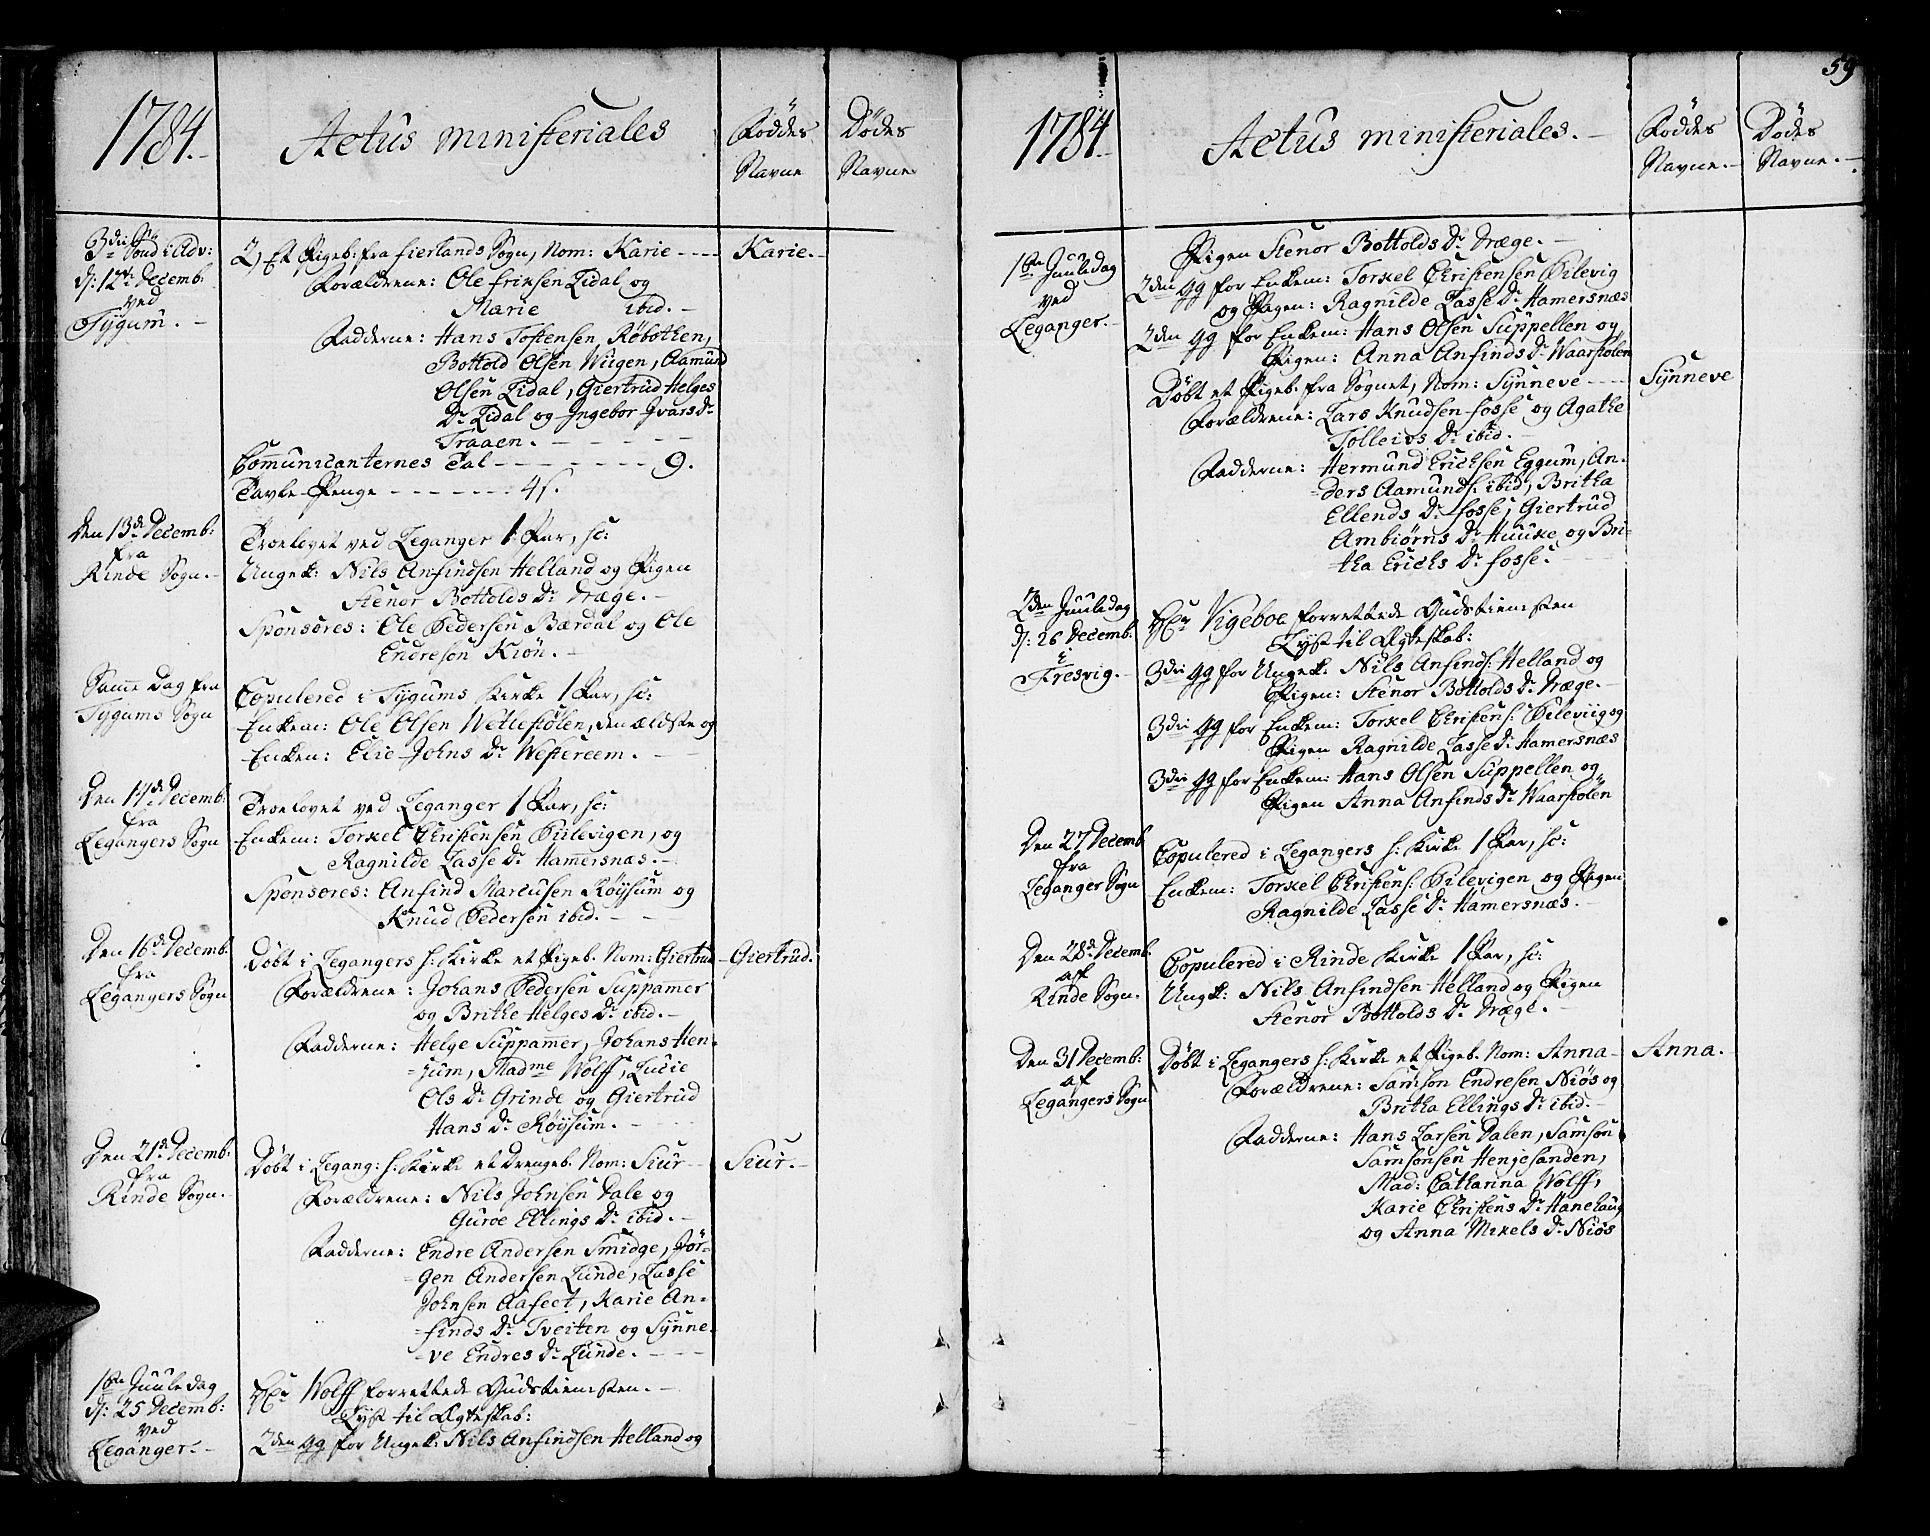 1784.-
Actus ministeriales
Føddes
Navne
Dødes
Navne
3die Sönd i Adv:
d: 12te Decemb.
ved
Tygum. -
2, Et Pigeb: fra Fierlands Sogn, Nom: Karie ----
Karie.-
Forældrene: Ole Eriksen Lidal og
Marie ibid. -
Fadderne: Hans Tostensen, Røbothen,
Bottold Olsen Wiigen, Aamund
Olsen Lidal, Giertrud Helges
Dr Lidal og Ingebor Ivars Dr
Traaen. - - - - - -
Communicanternes Tal - - - - - - - - 9.
Tavle Penge - - - - - - - 4s.
Den 13de Decemb:
fra
Rinde Sogn. -
Troelovet ved Leganger 1 Par, sc:
Ungek: Nils Anfindsen Helland og Pigen
Stenor Bottolds Dr Dræge. -
Sponsores: Ole Pedersen Bærdal og Ole
Endresen Kiøn. -
Samme Dag fra
Tygums Sogn
Copulered i Tygums Kirke 1 Par, sc:
Enkem: Ole Olsen Wetlestølen, den ældste og
Enken: Elie Johns Dr Westereem. -
Den 14de Decemb:
fra
Legangers Sogn
Troelovet ved Leganger 1 Par, sc:
Enkem: Torkel Christensen Pilevigen, og
Ragnilde Lasse Dr Hamersnæs. -
Sponsores: Anfind Marcusen Røysum og
Knud Pedersen ibid. - -
Den 16de Decemb.
fra
Legangers Sogn
Døbt i Legangers h: Kirke et Pigeb. Nom: Giertrud
Giertrud.
Forældrene: Johans Pedersen Suppamer
og Brithe Helges Dr ibid. -
Fadderne: Helge Suppamer, Johans Hen-
=jum, Madme Wolff, Lucie
Ols Dr Grinde og Giertrud
Hans Dr Røysum. - - - -
Den 21de Decemb.
fra
Rinde Sogn. -
Døbt i Legang: h: Kirke et Drengeb. Nom: Siur --
Siur. -
Forældrene: Nils Johnsen Dale og
Guroe Ellings Dr ibid. -
Fadderne: Endre Andersen Smidge, Jør-
=gen Andersen Lunde, Lasse
Johnsen Aafeet, Karie An=
=finds Dr Tveiten og Synne-
=ve Endres Dr Lunde. - - - -
1ste Juule dag
d: 25 Decemb:
ved
Leganger. -
Hr Wolff forrettede Gudstienesten. -
Lyst til Ægteskab:
2den gg for Ungek: Nils Anfindsen Helland og
59
1784.-
Actus ministeriales. -
Føddes
Navne. -
Dødes
Navne. -
1ste Juuledag
ved
Leganger. -
Pigen Stenor Bottolds Dr Dræge. -
2den gg for Enkem: Torkel Christensen Pilevig
og Pigen: Ragnilde Lasse Dr Hamersnæs
2den gg for Enkem: Hans Olsen Suppellen og
Pigen: Anna Anfinds Dr Waarstølen
Døbt et Pigeb. fra Sognet, Nom: Synneve ----
Synneve
Forældrene: Lars Knudsen Fosse og Agathe
Tolleivs Dr ibid. -
Fadderne: Hermund Erichsen Eggum, An-
=ders Aamunds: ibid, Britha
Ellends Dr Fosse, Giertrud
Ambiørns Dr Huuke og Bri-
=tha Erichs Dr Fosse. -
2den Juuledag
d: 26 Decemb.
i
Fresvig. -
Hr Vigeboe forrettede Gudstienesten
Lyst til Ægteskab:
3die gg for Ungek: Nils Anfinds: Helland og
Pigen: Stenor Bottolds Dr Dræge. -
3die gg for Enkem: Torkel Christens: Pileviig og
Pigen Ragnilde Lasse Dr Hamersnæs
3die gg for Enkem: Hans Olsen Suppellen og
Pigen Anna Anfinds Dr Waarstølen
Den 27 Decemb
fra
Leganger Sogn
Copulered i Legangers h: Kirke 1 Par, sc:
Enkem: Torkel Christens: Pilevigen og Pigen
Ragnilde Lasse Dr Hamersnæs. -
Den 28de Decemb.
af
Rinde Sogn.
Copulered i Rinde Kirke 1 Par, sc:
Ungk: Nils Anfindsen Helland og Pigen
Stenor Bottolds Dr Dræge. -
Den 31 Decemb:
af
Legangers Sogn
Døbt i Legangers h: Kirke et Pigeb. Nom: Anna-
Anna.
Forældrene: Samson Endresen Niøs og
Britha Ellings Dr ibid. -
Fadderne: Hans Larsen Dalen, Samson
Samsonsen Henjesanden,
Mad: Catharina Wolff,
Karie Christens Dr Hanehaug
og Anna Mikels Dr Niøs